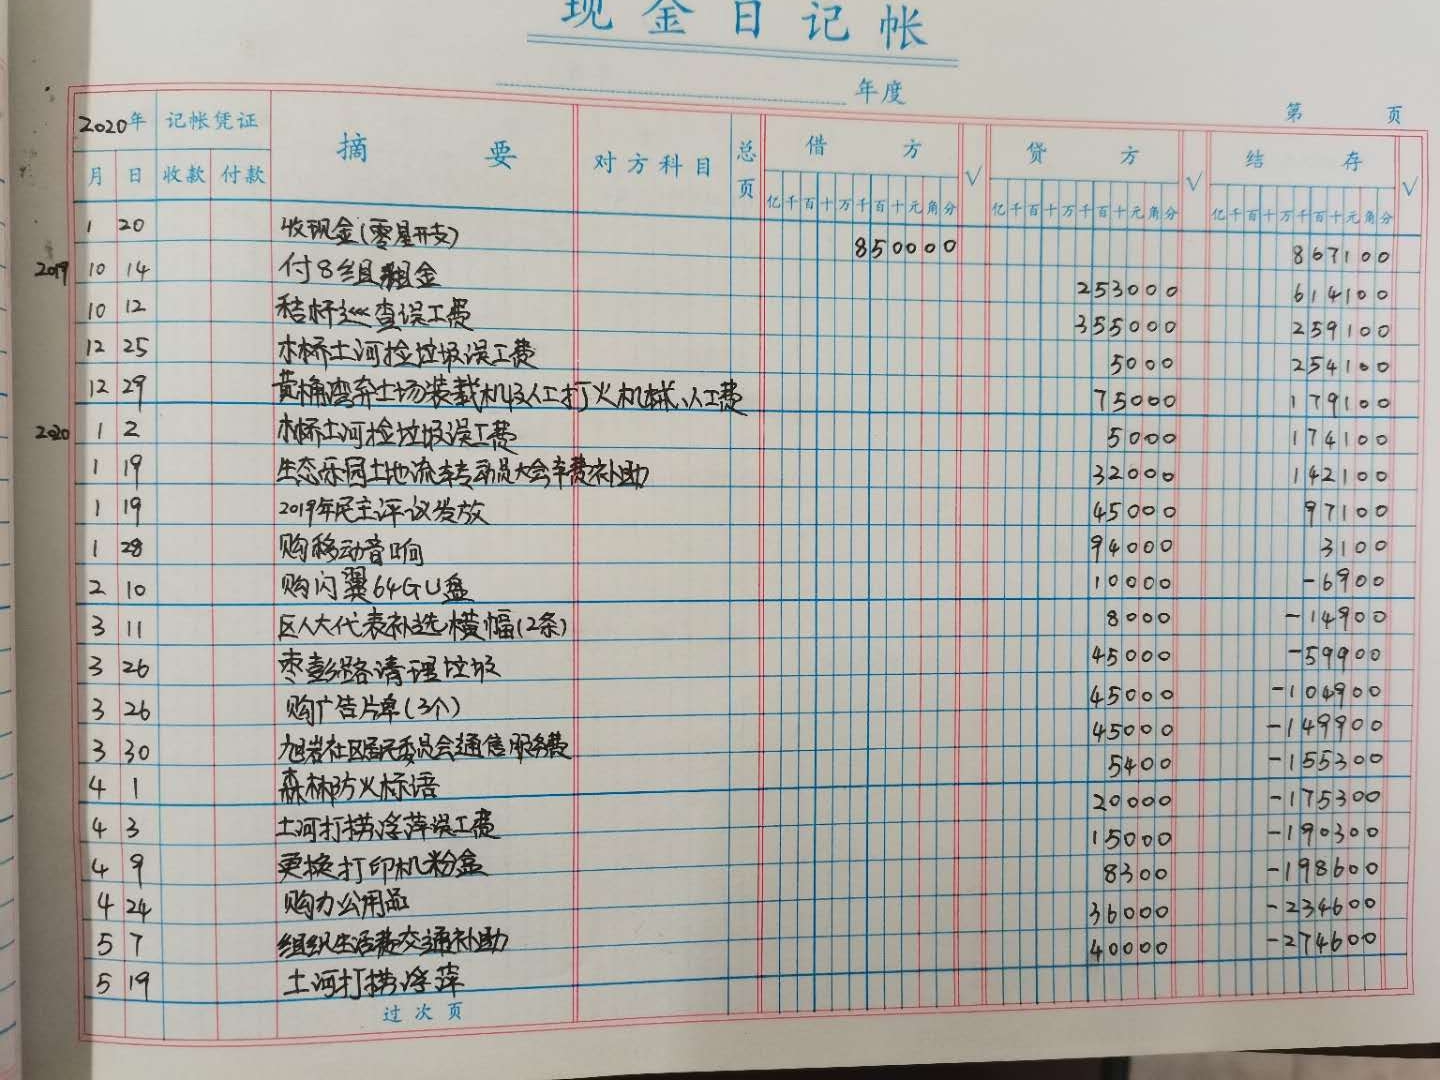 现金日记帐
年度
第 页
2020年 记帐凭证 摘要 对方科目 总页 借方 √ 贷方 √ 结存 √
月 日 收款 付款 亿千百十万千百十元角分 亿千百十万千百十元角分 亿千百十万千百十元角分
1 20 收现金(零星开支) 850000 867100
2019 10 14 付8组租金 253000 614100
10 12 秸秆巡查误工费 355000 259100
12 25 木桥土河捡垃圾误工费 5000 254100
12 29 黄桷湾弃土场装载机及人工打火机械、人工费 75000 179100
2020 1 2 木桥土河捡垃圾误工费 5000 174100
1 19 生态乐园土地流转动员大会车费补助 32000 142100
1 19 2019年民主评议发放 45000 97100
1 28 购移动音响 94000 3100
2 10 购闪翼64GU盘 10000 -6900
3 11 区人大代表补选横幅(2条) 8000 -14900
3 26 枣彭路清理垃圾 45000 -59900
3 26 购广告片单(3个) 45000 -104900
3 30 旭岩社区居民委员会通信服务费 45000 -149900
4 1 森林防火标语 5400 -155300
4 3 土河打捞浮萍误工费 20000 -175300
4 9 更换打印机粉盒 15000 -190300
4 24 购办公用品 8300 -198600
5 7 组织生活费交通补助 36000 -234600
5 19 土河打捞浮萍 40000 -274600
过次页